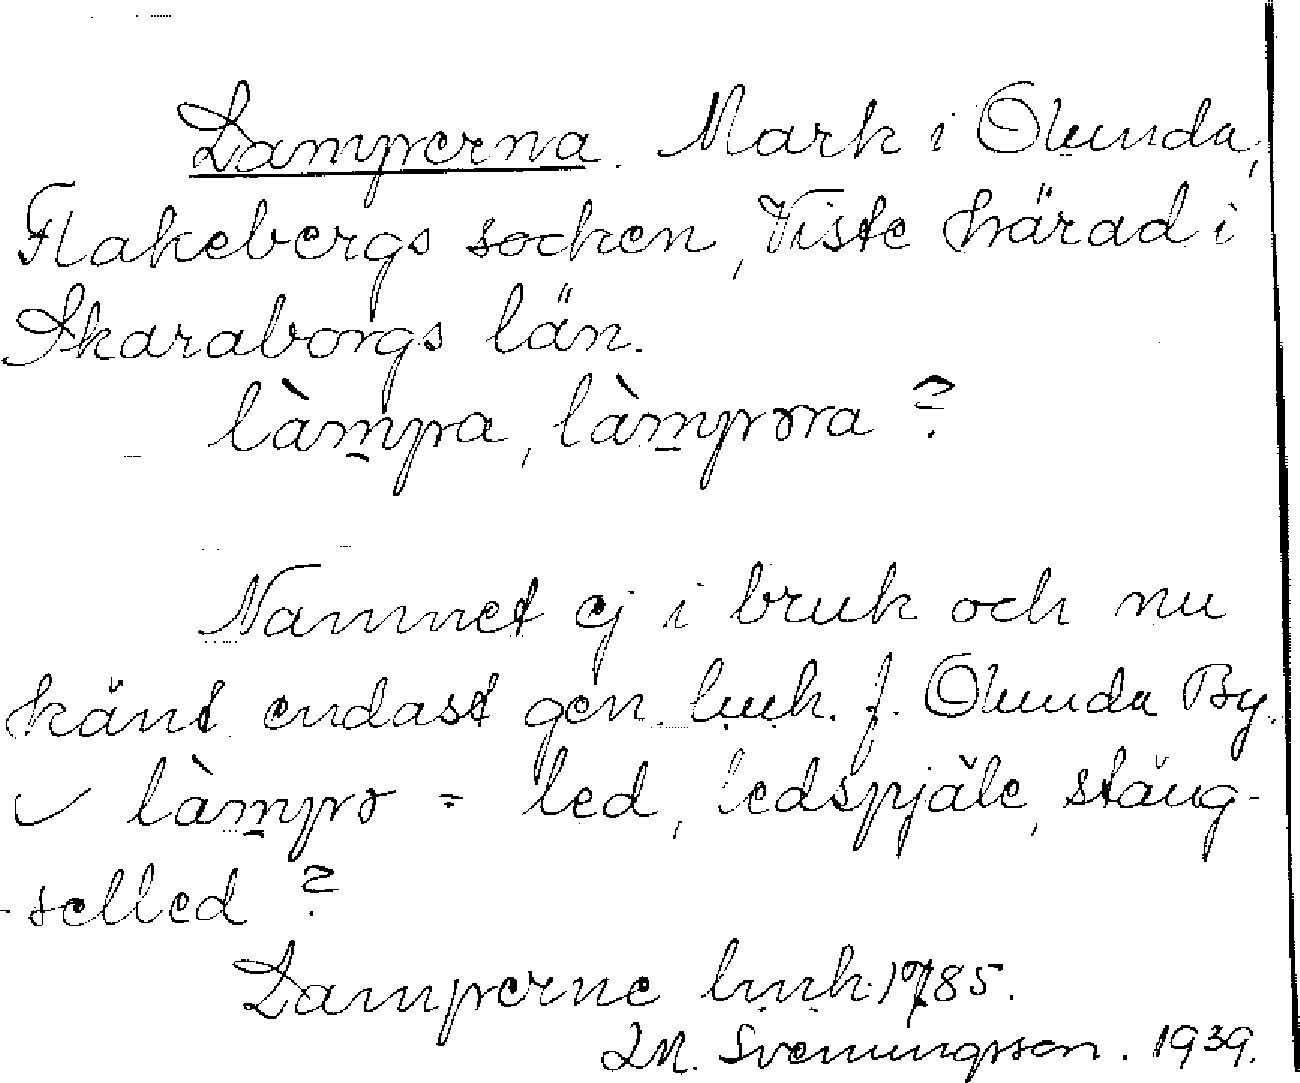 Lamperna. Mark i Ölunda,
Flakebergs socken, Viste härad i
Skaraborgs län.
làmpa, làmpəra ?
Namnet ej i bruk och nu
känt endast gen. lmk. f. Ölunda By.
✓ làmpə = led, ledspjäle, stäng-
-selled ?
Lamperne lmk. 1785.
Svenungsson. 1939.